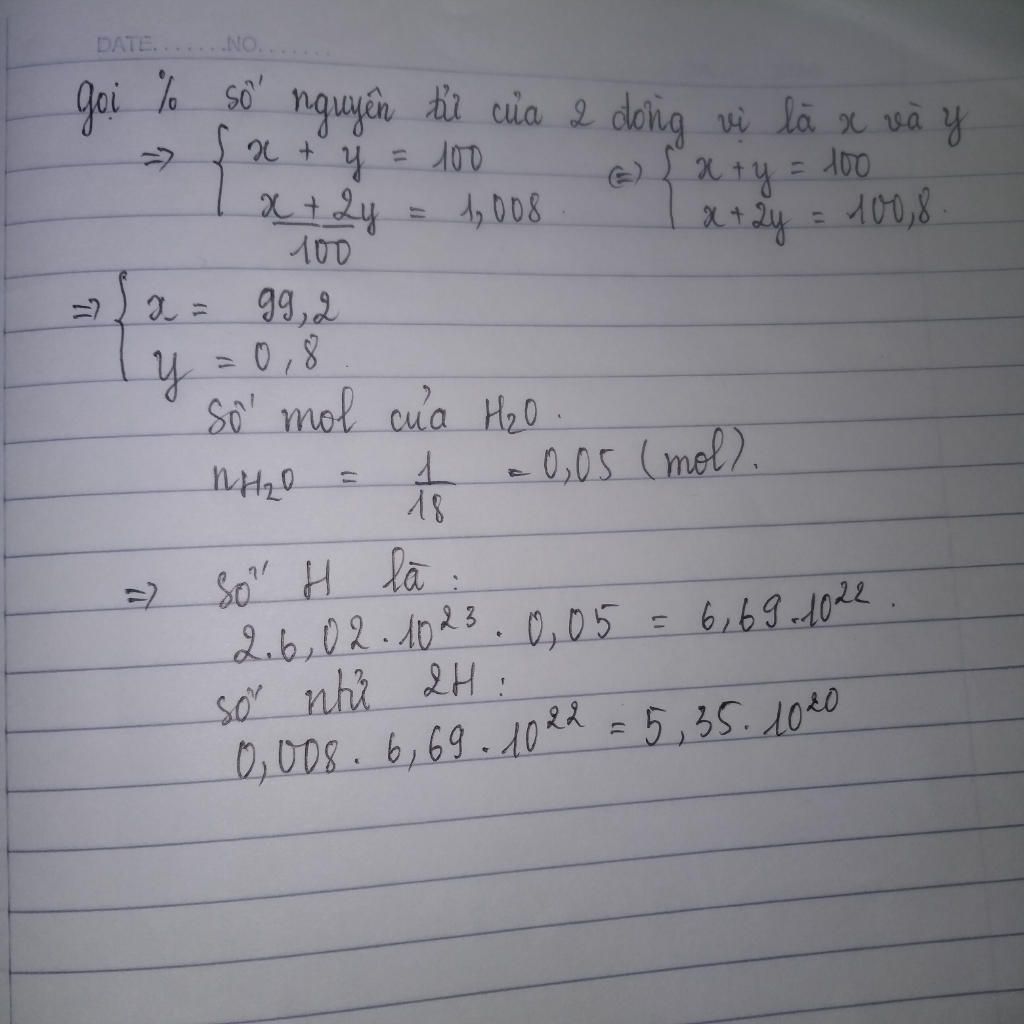 DATE.......NO.......
gọi % số nguyên tử của 2 đồng vị là x và y
=> { x + y = 100 (=) { x + y = 100
(x + 2y)/100 = 1,008. x + 2y = 100,8.
=> { x = 99,2
y = 0,8.
Số mol của H2O.
nH2O = 1/18 = 0,05 (mol).
=> Số H là:
2.6,02.10²³. 0,05 = 6,69.10²².
số ntử 2H:
0,008. 6,69.10²² = 5,35.10²⁰